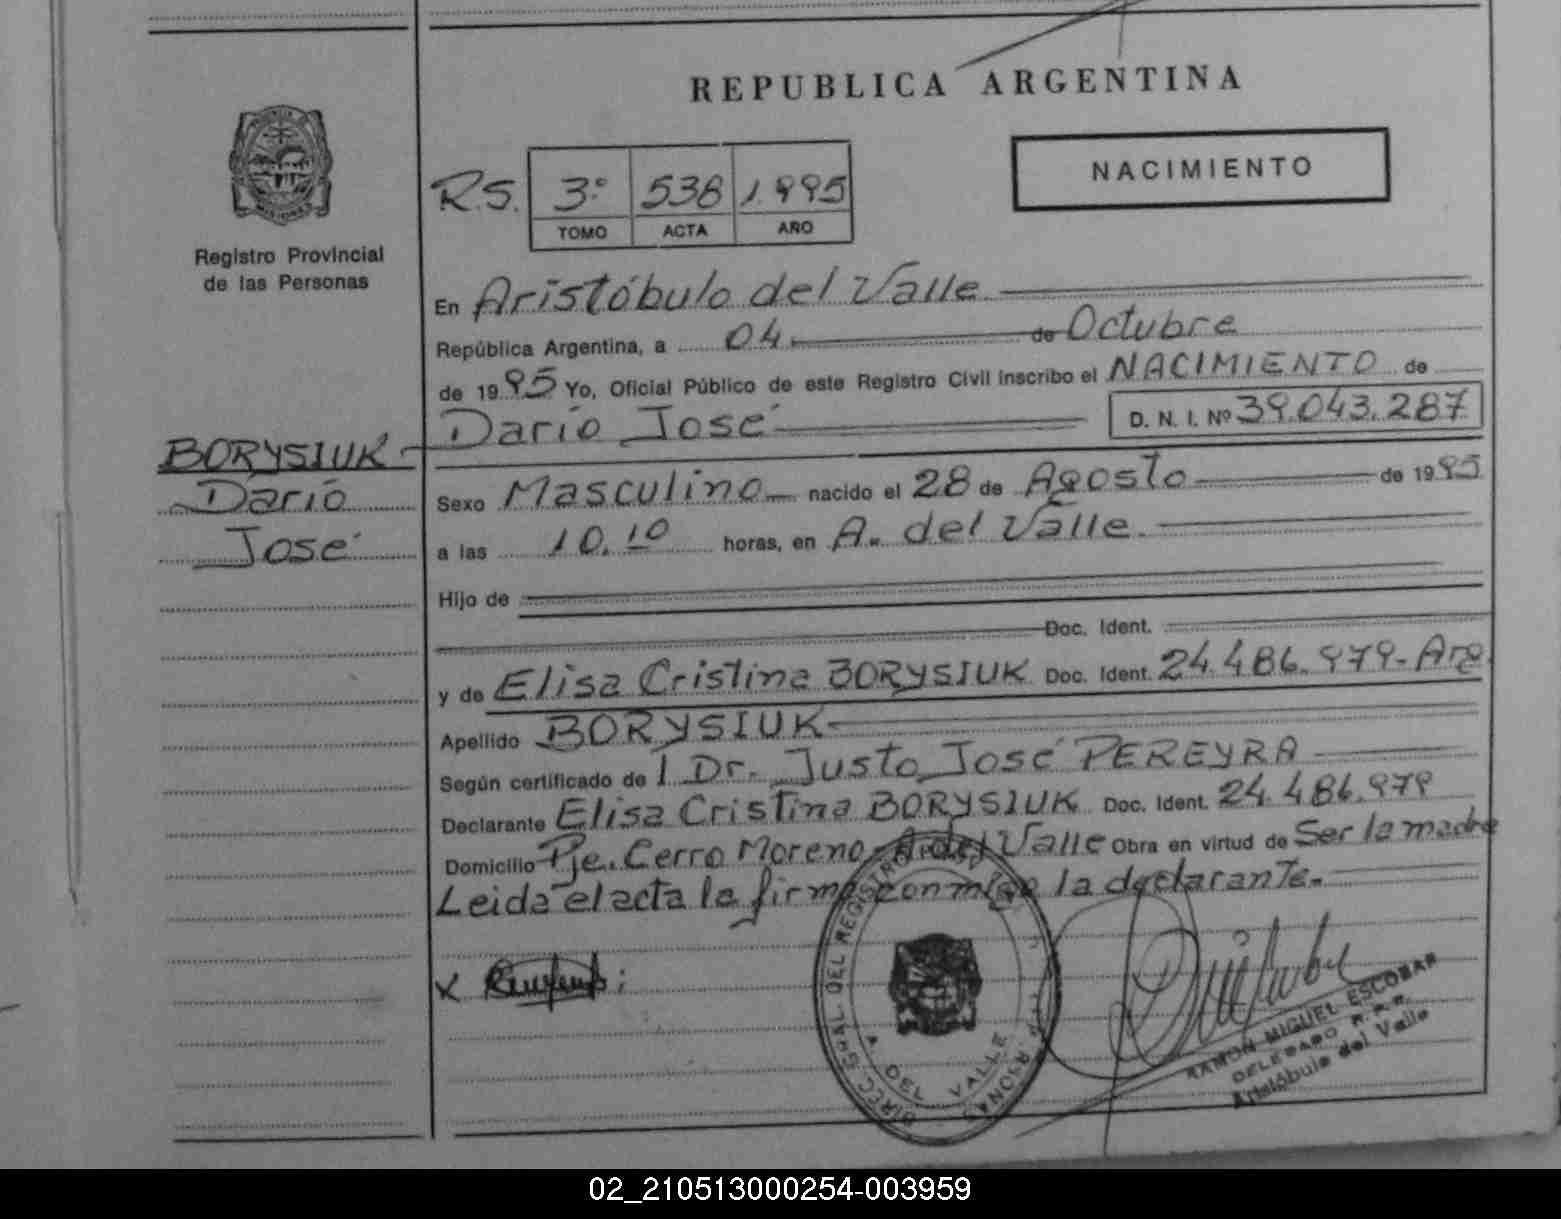 REPUBLICA ARGENTINA
NACIMIENTO
Registro Provincial
de las Personas
R.S. 3º 538 1.995
TOMO ACTA AÑO
En Aristóbulo del Valle
República Argentina, a 04 de Octubre
de 1995 Yo, Oficial Público de este Registro Civil inscribo el NACIMIENTO de
Darío José D. N. I. Nº 39.043.287
BORYSIUK
Darío
José
Sexo Masculino nacido el 28 de Agosto de 1995
a las 10.10 horas, en A. del Valle
Hijo de
Doc. Ident.
y de Elisa Cristina BORYSIUK Doc. Ident. 24.486.979-Arg.
Apellido BORYSIUK
Según certificado de 1 Dr. Justo José PEREYRA
Declarante Elisa Cristina BORYSIUK Doc. Ident. 24.486.979
Domicilio Pje. Cerro Moreno-A.del Valle Obra en virtud de Ser la madre
Leida el acta la firma conmigo la declarante.
X
DIREC. GRAL. DEL REGISTRO
A. DEL VALLE
RAMON MIGUEL ESCOBAR
DELEGADO R.P.P.
Aristóbulo del Valle
02_210513000254-003959